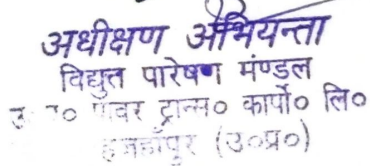 अधीक्षण अभियन्ता
विद्युत पारेषण मंण्डल
उ०प्र० पावर ट्रान्स० कार्पो० लि०
(उ०प्र०)